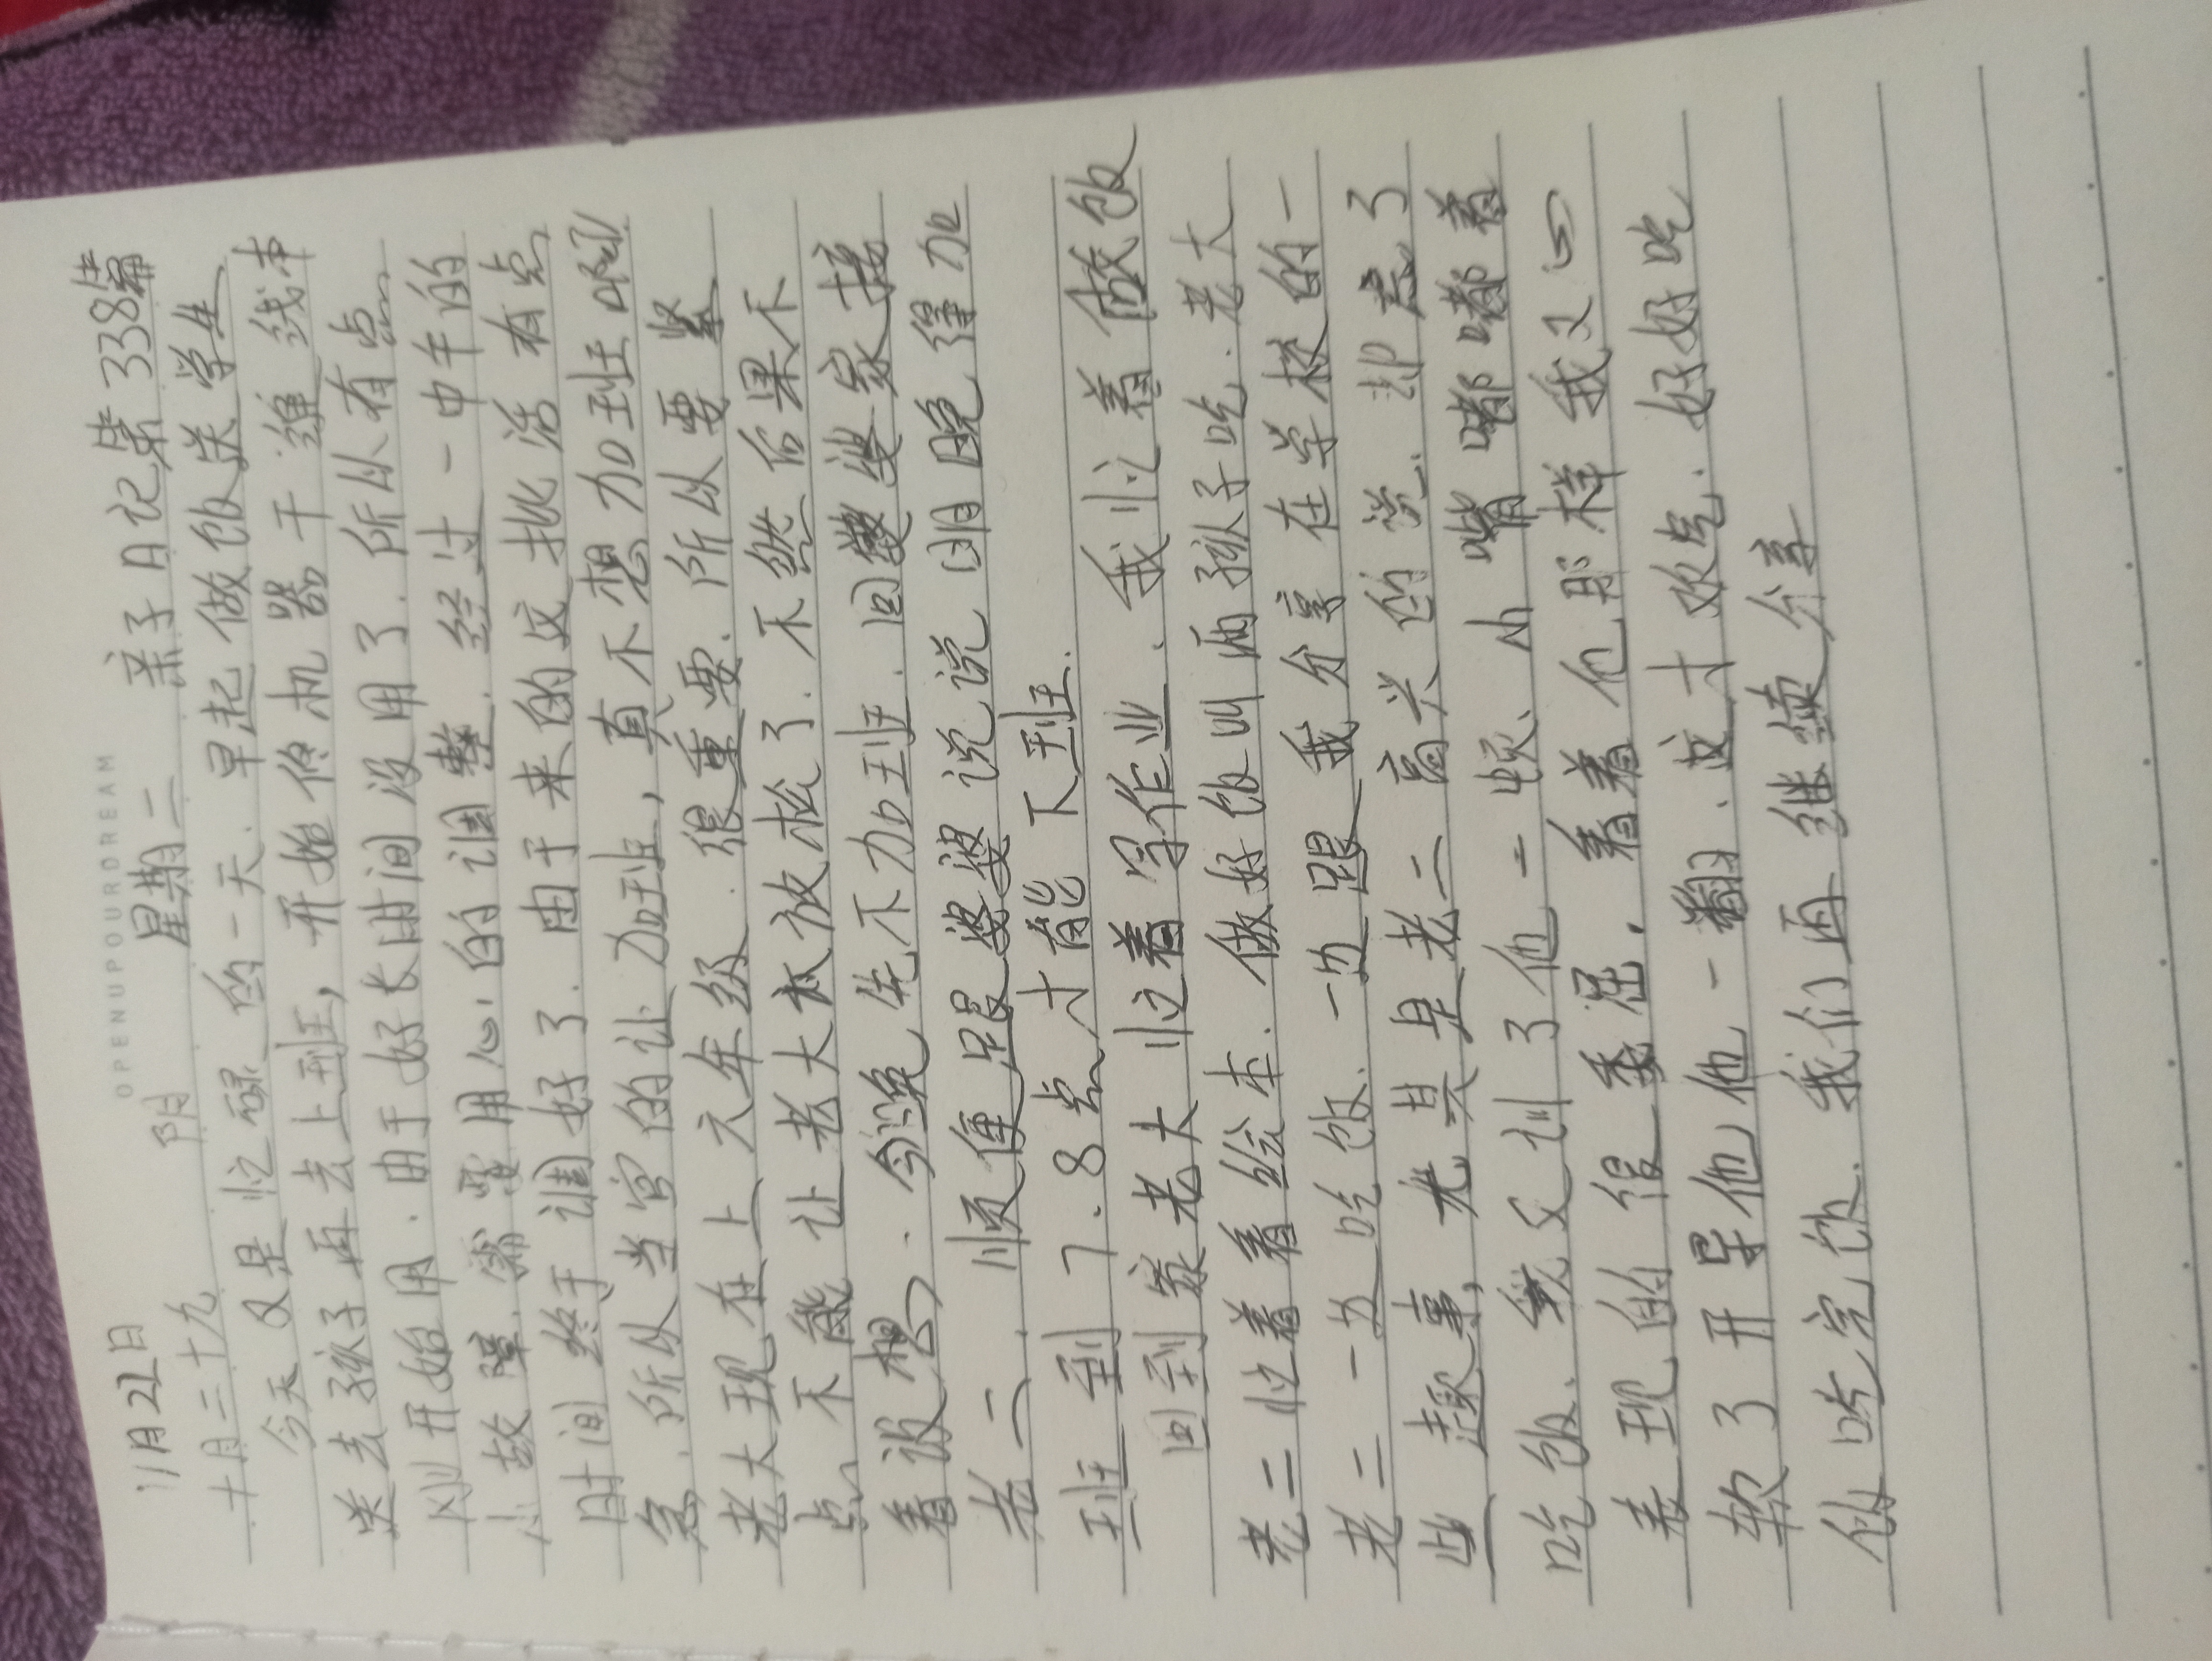 OPENUPOURDREAM
11月22日 阴 星期二 亲子日记第338篇
十月二十九
今天又是忙碌的一天.早起做饭送学生
送去孩子再去上班,开始修机器干缠线本
刚开始用.由于好长时间没用了.所以有点
小故障.需要用心的调整.经过一中午的
时间终于调好了.由于来的这批活有点
急.所以当官的让加班,真不想加班啊
老大现在上六年级.很重要.所以要紧
点不能让老大放放松了.不然后果不
着设想.今晚先不加班.回婆婆家接
老二.顺便跟婆婆说说明晚得加
班到7.8点才能下班.
回到家老大忙着写作业.我忙着做饭
老二忙着看绘本.做好饭叫两孩子吃.老大
老二一边吃饭.一边跟我分享在学校的一
些趣事,尤其是老二高兴的说.却忘了
吃饭、我又训了他一顿、小嘴嘟嘟着
表现的很委屈.看着他那样我又心
软了开导他他一翻.这才欢气.好好吃
饭吃完饭.我们再继续分享